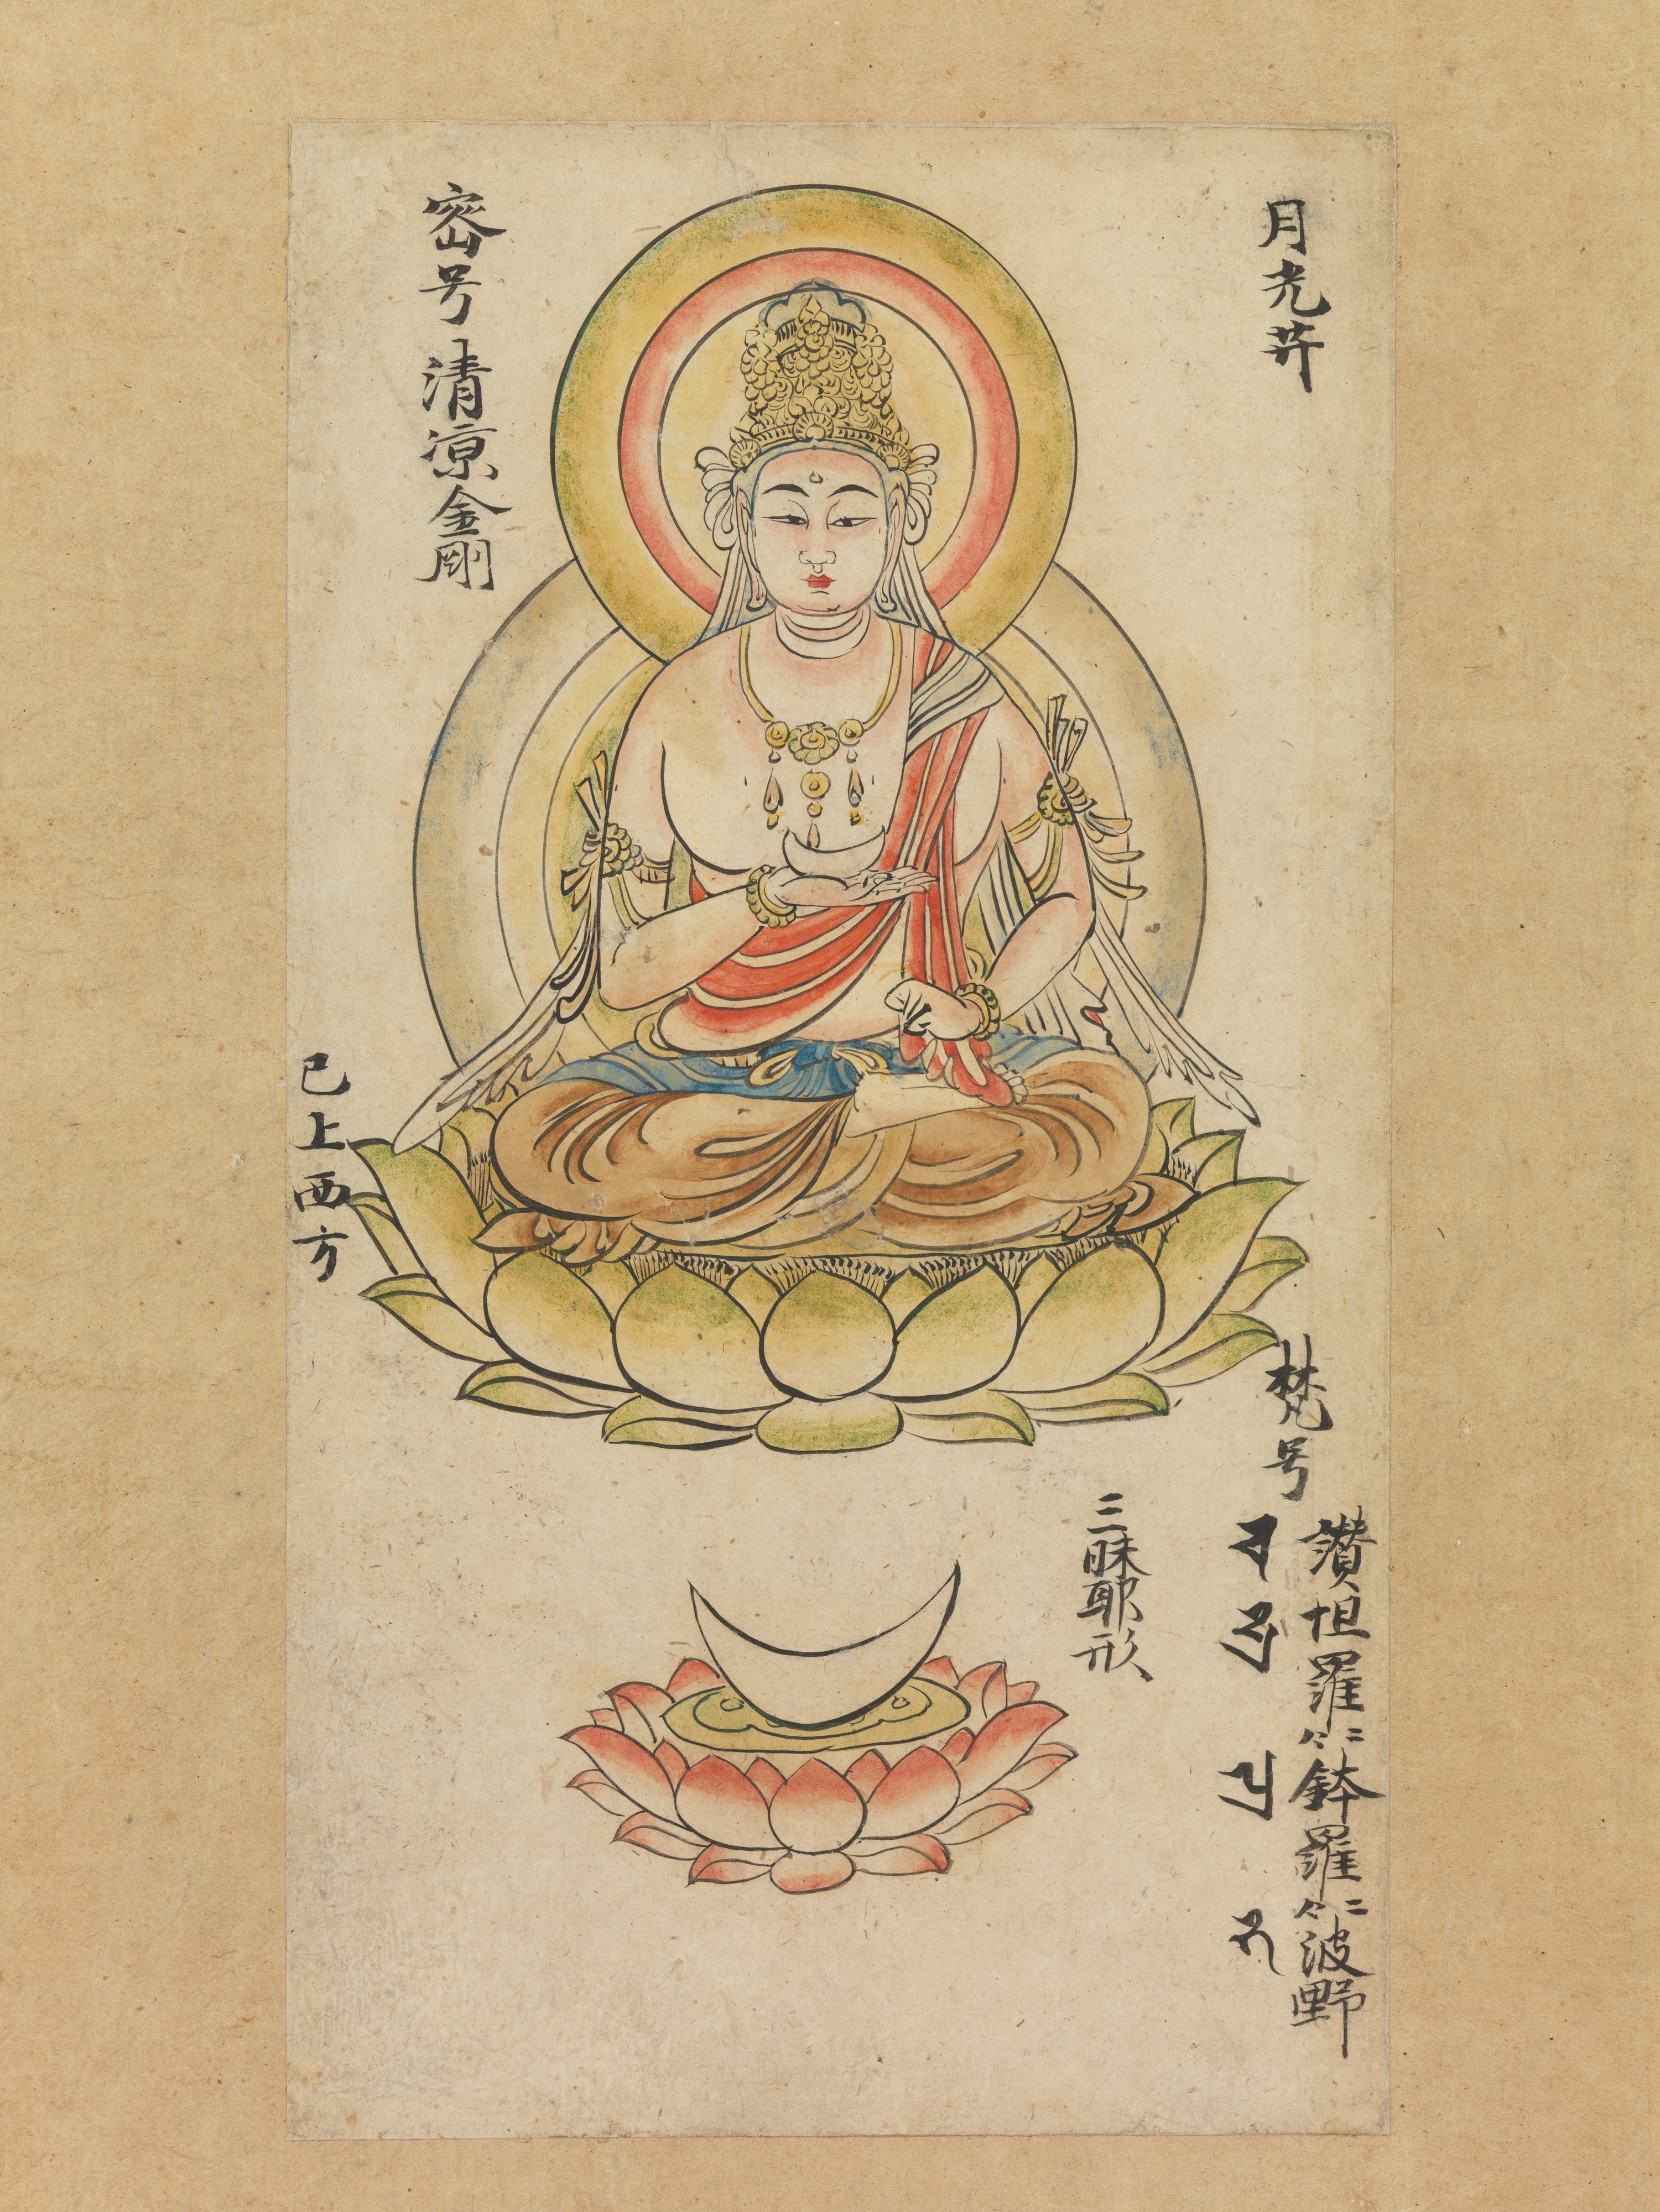 月光𦬇
梵号
讃怛羅二合鉢羅二合波野
三昧耶形
密号 清涼金剛
已上西方